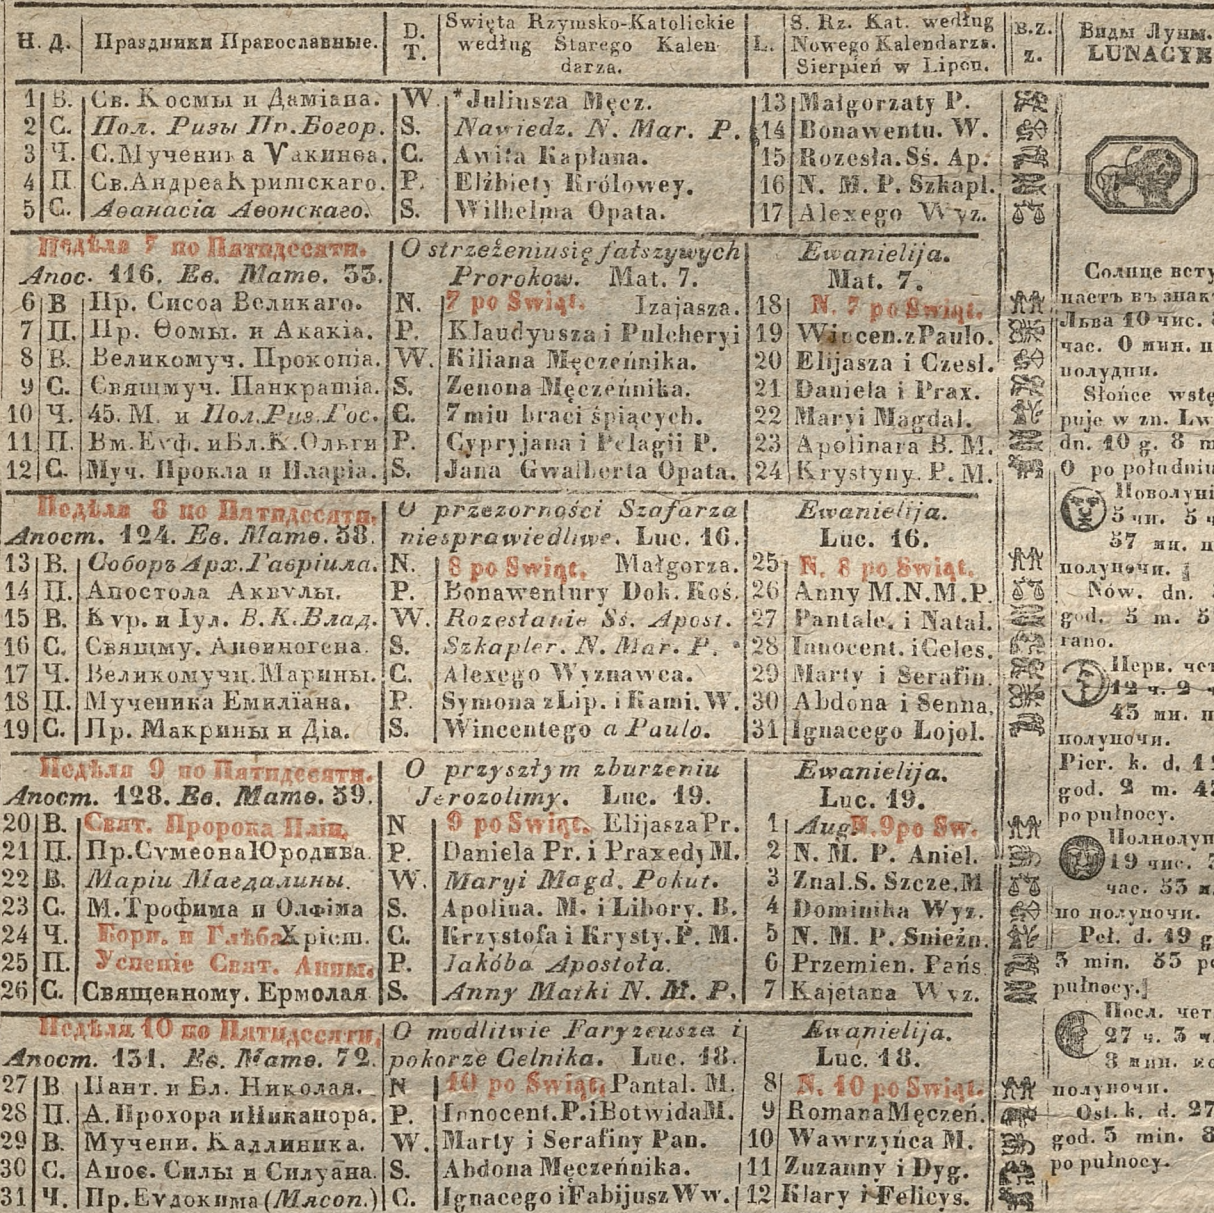 Н. Д. Праздники Православные. D. T. Swięta Rzymsko-Katolickie według Starego Kalendarza. L. S. Rz. Kat. według Nowego Kalendarza. Sierpień w Lipcu. B.z. z. Виды Луны. LUNACYE
1 В. Св. Космы и Даміана. W. *Juliusza Męcz. 13 Małgorzaty P.
2 С. Пол. Ризы Пр. Богор. S. Nawiedz. N. Mar. P. 14 Bonawentu. W.
3 Ч. С. Мученика Уакинѳа. C. Awita Kapłana. 15 Rozesła. Sś. Ap.
4 П. Св. Андреа Критскаго. P. Elżbiety Królowey. 16 N. M. P. Szkapl.
5 С. Аѳанасіа Аѳонскаго. S. Wilhelma Opata. 17 Alexego Wyz.
Недѣля 7 по Пятидесяти. O strzeżeniu się fałszywych Ewanielija.
Апос. 116. Ев. Матѳ. 33. Prorokow. Mat. 7. Mat. 7.
6 В Пр. Сисоа Великаго. N. 7 po Swiąt. Izajasza. 18 N. 7 po Swiąt.
7 П. Пр. Ѳомы. и Акакіа. P. Klaudyusza i Pulcheryi 19 Wincen. z Paulo.
8 В. Великомуч. Прокопіа. W. Kiliana Męczeńnika. 20 Elijasza i Czesł.
9 С. Свящмуч. Панкратіа. S. Zenona Męczeńnika. 21 Daniela i Prax.
10 Ч. 45. М. и Пол. Риз. Гос. C. 7miu braci śpiących. 22 Maryi Magdal.
11 П. Вм. Еуф. и Бл. К. Ольги P. Cypryjana i Pelagii P. 23 Apolinara B. M.
12 С. Муч. Прокла и Иларіа. S. Jana Gwalberta Opata. 24 Krystyny. P. M.
Недѣля 8 по Пятидесяти. O przezorności Szafarza Ewanielija.
Апост. 124. Ев. Матѳ. 58. niesprawiedliwe. Luc. 16. Luc. 16.
13 В. Соборъ Арх. Гавріила. N. 8 po Swiąt. Małgorza. 25 N. 8 po Swiąt.
14 П. Апостола Акѵлы. P. Bonawentury Dok. Koś. 26 Anny M.N.M.P.
15 В. Кѵр. и Іул. В. К. Влад. W. Rozesłanie Sś. Apost. 27 Pantale. i Natal.
16 С. Свящму. Аѳиногена. S. Szkapler. N. Mar. P. 28 Innocent. i Celes.
17 Ч. Великомучц. Марины. C. Alexego Wyznawca. 29 Marty i Serafin.
18 П. Мученика Емиліана. P. Symona z Lip. i Kami. W. 30 Abdona i Senna,
19 С. Пр. Макрины и Діа. S. Wincentego a Paulo. 31 Ignacego Lojol.
Недѣля 9 по Пятидесяти. O przyszłym zburzeniu Ewanielija.
Апост. 128. Ев. Матѳ. 59. Jerozolimy. Luc. 19. Luc. 19.
20 В. Свят. Пророка Иліи, N 9 po Swiąt. Elijasza Pr. 1 Aug. N. 9 po Sw.
21 П. Пр. Сѵмеона Юродива. P. Daniela Pr. i Praxedy M. 2 N. M. P. Aniel.
22 В. Маріи Магдалины. W. Maryi Magd. Pokut. 3 Znal. S. Szcze. M
23 С. М. Трофима и Олфіма S. Apolina. M. i Libory. B. 4 Dominika Wyz.
24 Ч. Борис. и Глѣба Хріст. C. Krzystofa i Krysty. P. M. 5 N. M. P. Snieżn.
25 П. Успеніе Свят. Анны. P. Jakóba Apostoła. 6 Przemien. Pańs
26 С. Священному. Ермолая S. Anny Matki N. M. P. 7 Kajetana Wyz.
Недѣля 10 по Пятидесяти. O modlitwie Faryzeusza i Ewanielija.
Апост. 131. Ев. Матѳ. 72. pokorze Celnika. Luc. 18. Luc. 18.
27 В Пант. и Бл. Николая. N 10 po Swiąt. Pantal. M. 8 N. 10 po Swiąt.
28 П. А. Прохора и Никанора. P. Innocent. P. i Botwida M. 9 Romana Męczeń.
29 В. Мучени. Каллиника. W. Marty i Serafiny Pan. 10 Wawrzyńca M.
30 С. Апос. Силы и Силуана. S. Abdona Męczeńnika. 11 Zuzanny i Dyg.
31 Ч. Пр. Еѵдокима (Мясоп.) C. Ignacego i Fabijusz Ww. 12 Klary i Felicys.
Солнце всту
паетъ въ знак
Льва 10 чис.
час. 0 мин. п
полудни.
Słońce wstę
puje w zn. Lw
dn. 10 g. 8 m
0 po południu
Новолуні
5 чи. 5 ч
57 мн. п
полуночи.
Nów. dn.
god. 5 m. 5
rano.
Перв. чет
12 ч. 2 ч
43 мн. п
полуночи.
Pier. k. d. 12
god. 2 m. 43
po pułnocy.
Полнолун
19 чис. 3
час. 53 м
по полуночи.
Peł. d. 19 g
3 min. 53 po
pułnocy.
Посл. чет
27 ч. 3 ч
8 мин. по
полуночи.
Ost. k. d. 27
god. 3 min. 8
po pułnocy.